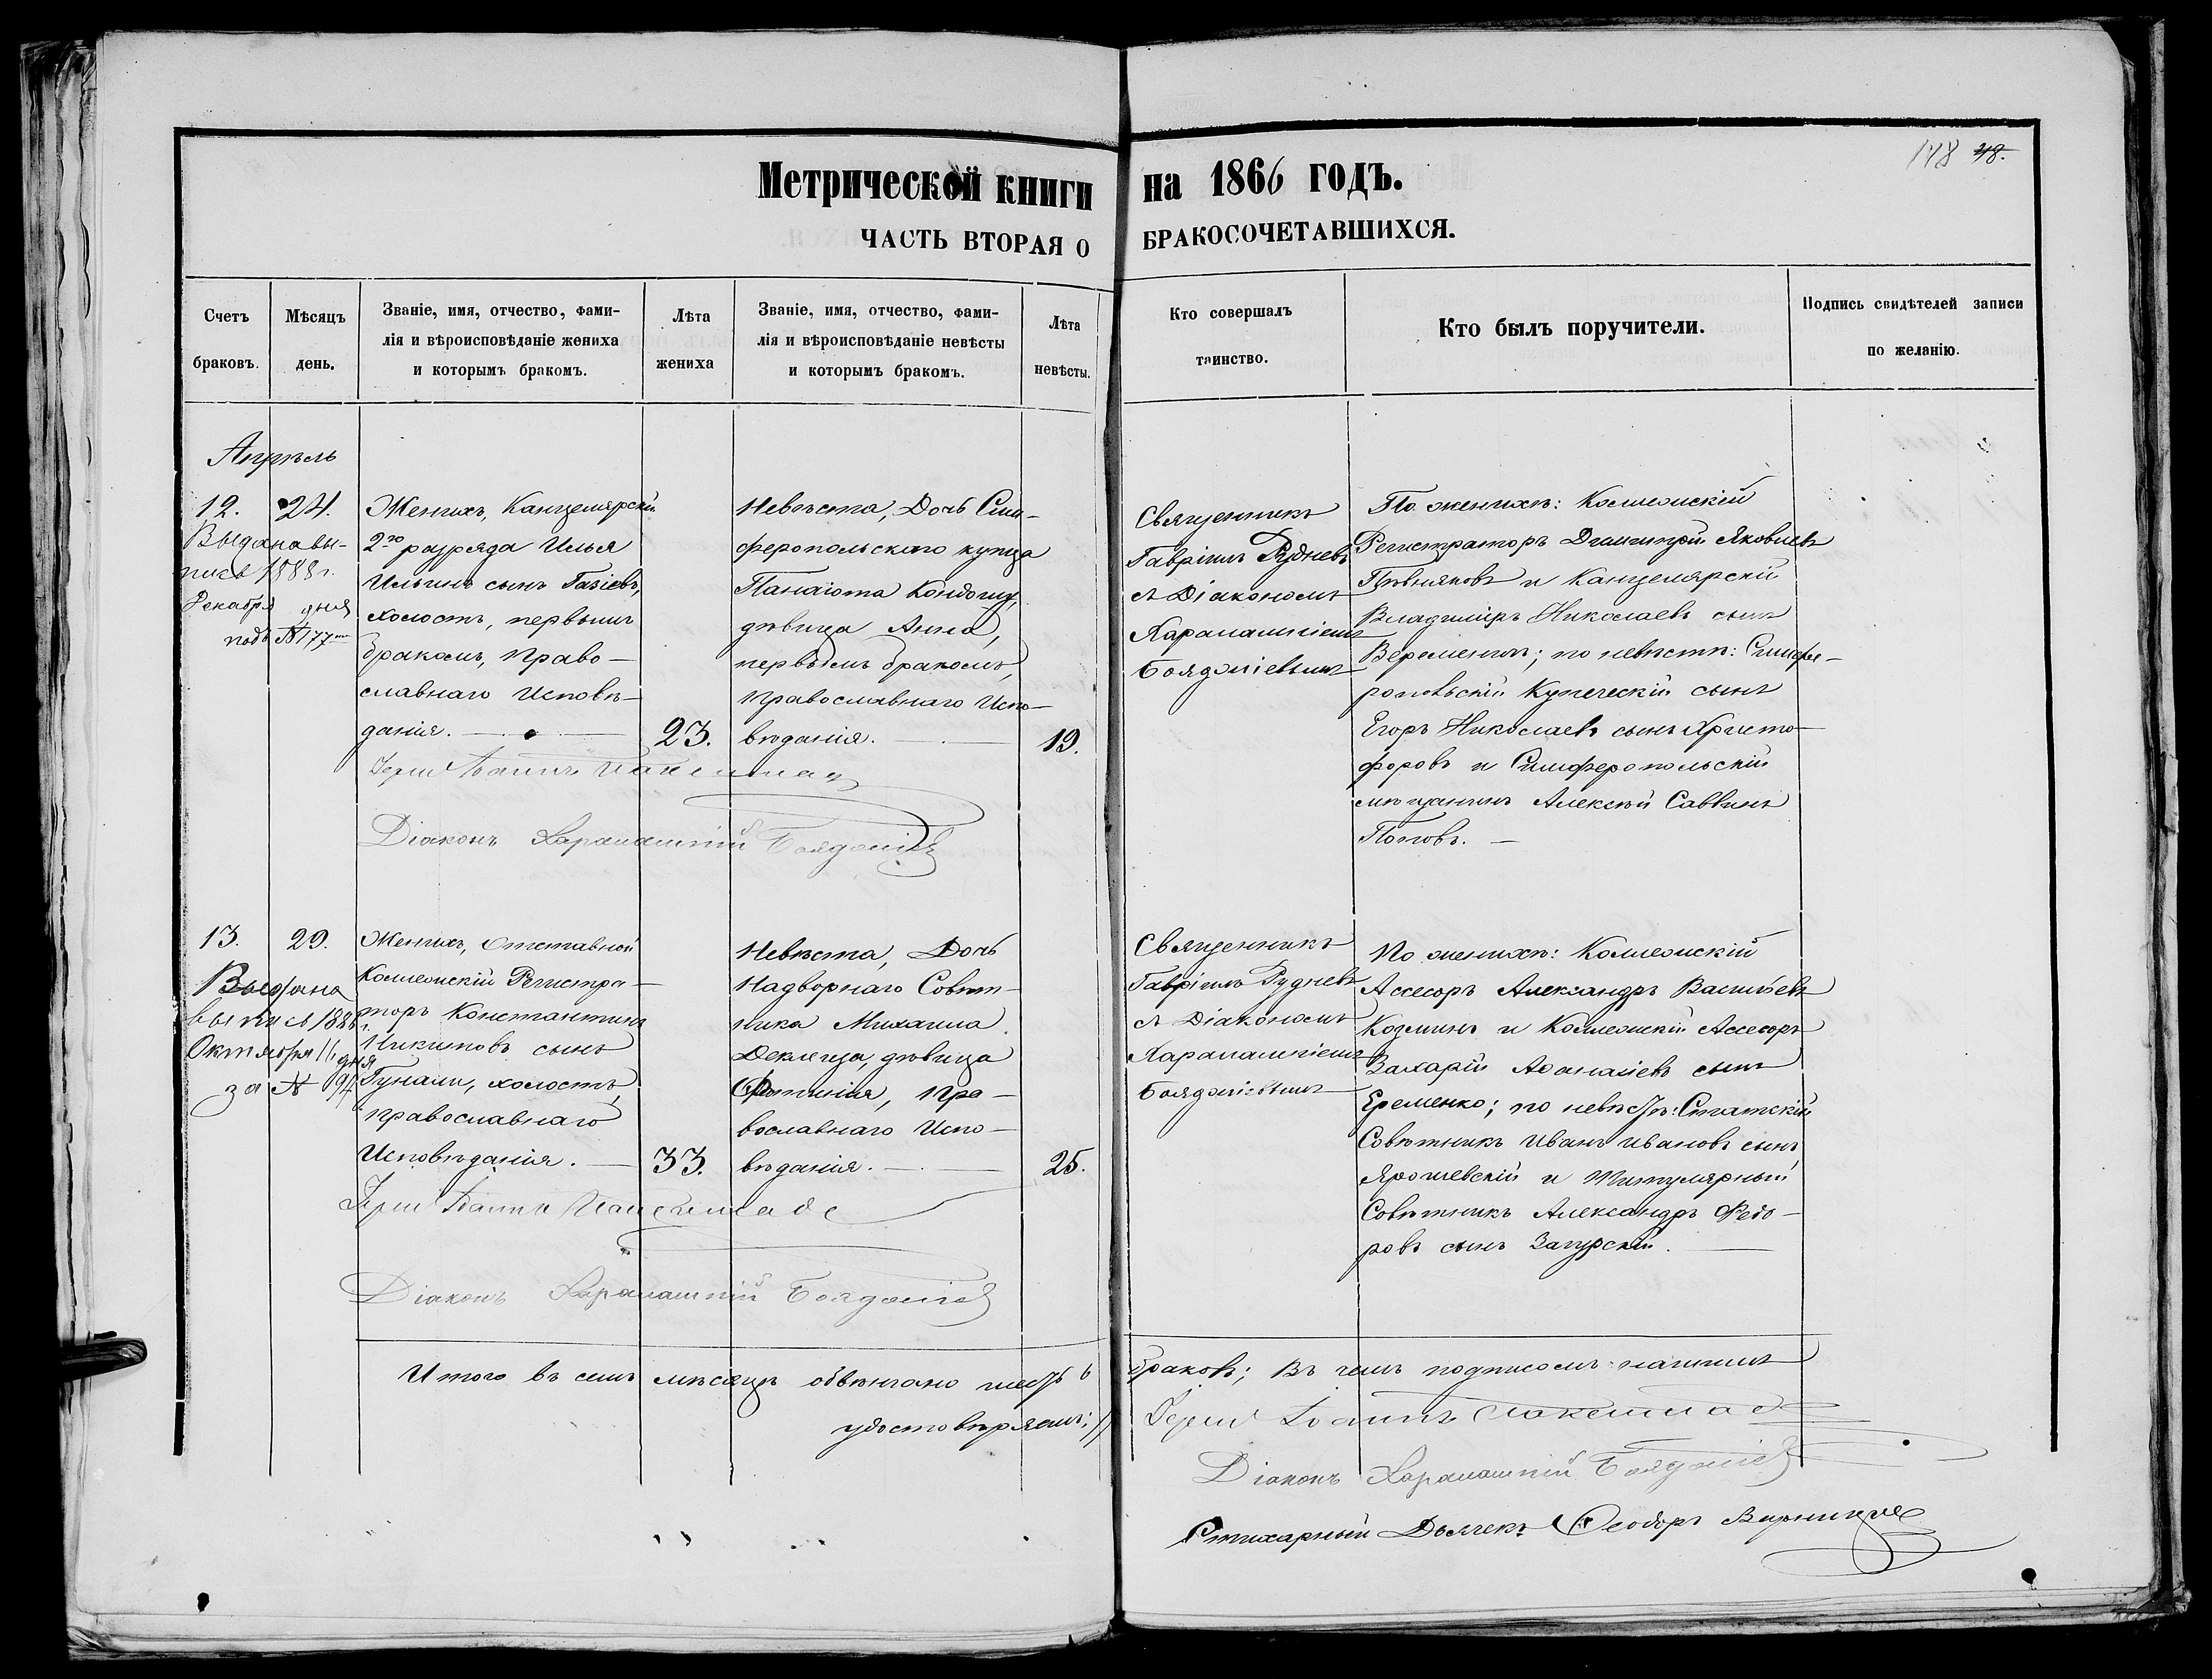 148 48.
Метрической книги на 1866 годъ.
ЧАСТЬ ВТОРАЯ О БРАКОСОЧЕТАВШИХСЯ.
Счетъ браковъ.
Мѣсяцъ день.
Званіе, имя, отчество, фами-
лія и вѣроисповѣданіе жениха
и которымъ бракомъ.
Лѣта жениха
Званіе, имя, отчество, фами-
лія и вѣроисповѣданіе невѣсты
и которымъ бракомъ.
Лѣта невѣсты.
Кто совершалъ
таинство.
Кто былъ поручители.
Подпись свидѣтелей записи
по желанію.
Апрѣль
12. 24.
Выдана вы-
пись 1888 г.
Декабря дня
подъ № 177
Женихъ, Канцелярскій
2го разряда Илья
Ильинъ сынъ Газіевъ,
холостъ, первымъ
бракомъ, Право-
славнаго Исповѣ-
данія. 23.
Невѣста, Дочь Сим-
феропольскаго купца
Панаіота
дѣвица Анна,
первымъ бракомъ,
Православнаго Испо-
вѣданія. 19.
Діаконъ Харалампій
Священникъ
Гавріилъ Рудневъ
съ Діакономъ
Харалампіемъ
По женихѣ: Коллежскій
Регистраторъ Димитрій Яковлевъ
и Канцелярскій
Владиміръ Николаевъ сынъ
по невѣстѣ: Симфе-
ропольскій Купеческій сынъ
Егоръ Николаевъ сынъ Христо-
форовъ и Симферопольскій
мѣщанинъ Алексѣй Саввинъ
Поповъ.
13. 29.
Выдана
выпись 1886 г.
Октября 16 дня
за №
Женихъ, Отставной
Коллежскій Регистра-
торъ Константинъ
Никитовъ сынъ
Гунали, холостъ,
православнаго
Исповѣданія. 33.
Невѣста, Дочь
Надворнаго Совѣт-
ника Михаила
дѣвица
Фотинія, Пра-
вославнаго Испо-
вѣданія. 25.
Діаконъ Харалампій
Священникъ
Гавріилъ Рудневъ
съ Діакономъ
Харалампіемъ
По женихѣ: Коллежскій
Ассесоръ Александръ Васильевъ
Козминъ и Коллежскій Ассесоръ
Захарій Аѳанасіевъ сынъ
Еременко; по невѣстѣ: Статскій
Совѣтникъ Иванъ Ивановъ сынъ
Ярошевскій и Титулярный
Совѣтникъ Александръ Федо-
ровъ сынъ Загурскій.
Итого въ семъ мѣсяцѣ обвѣнчано шесть 6 браковъ; Въ чемъ подписомъ нашимъ
удостовѣряемъ:
Діаконъ Харалампій
Стихарный Дьячекъ Ѳеодоръ